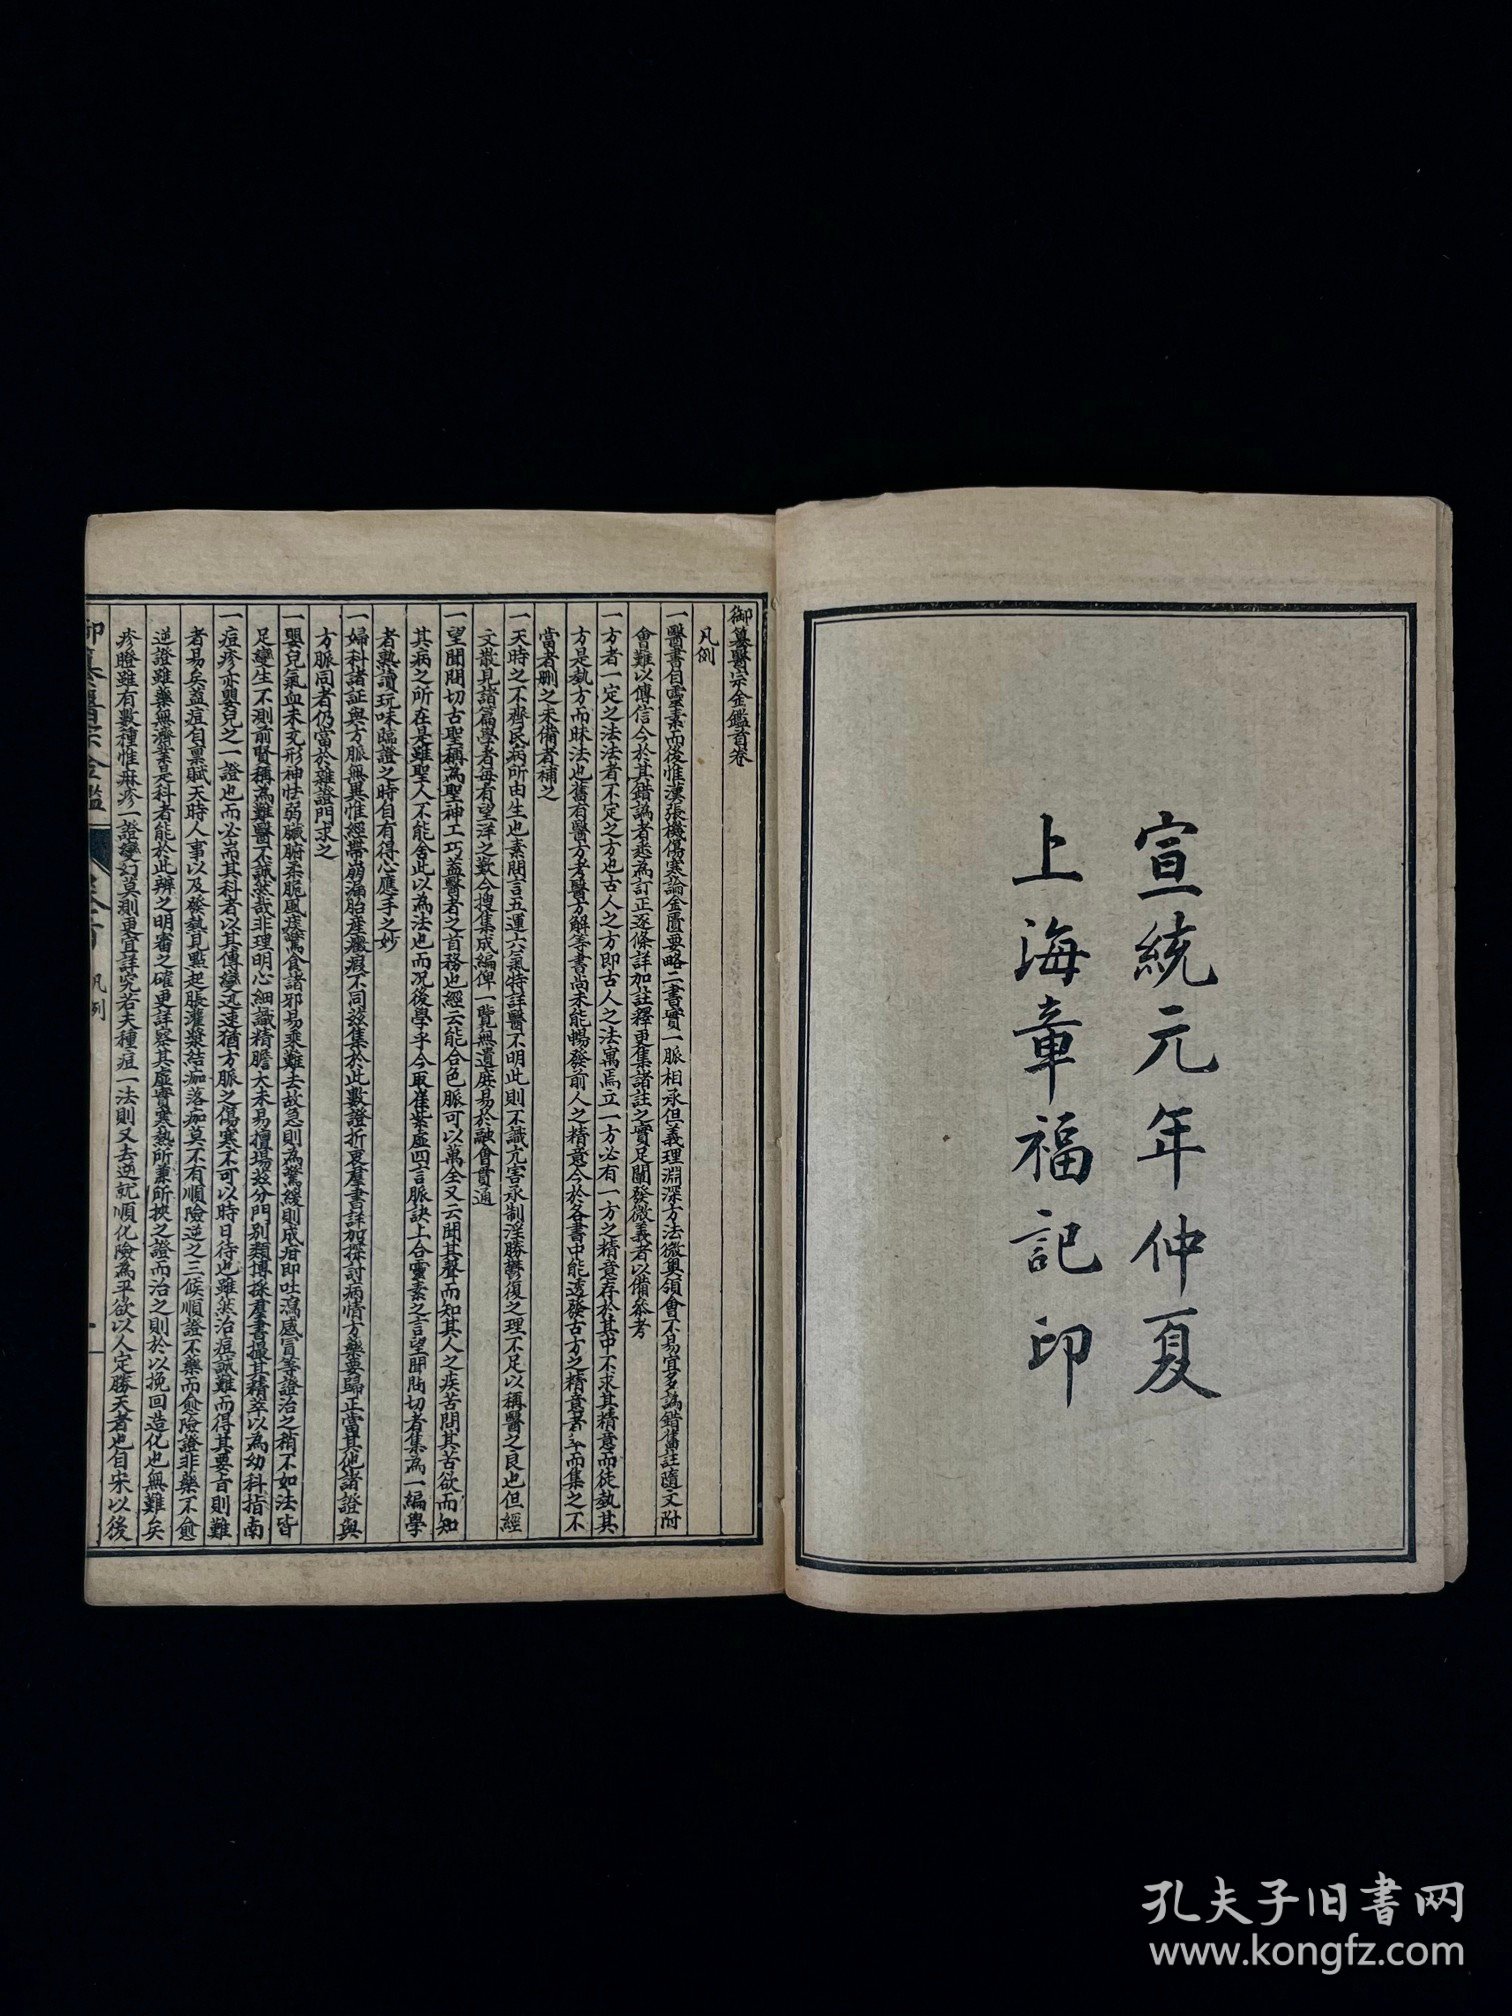 宣統元年仲夏
上海章福記印
御纂醫宗金鑑首卷
凡例
一醫書自靈素而後惟漢張機傷寒論金匱要略二書實一脈相承但義理淵深方法微奧領會不易宜多譌錯舊註隨文附
會難以傳信今於其錯譌者悉為訂正逐條詳加註釋更集諸註之實足闡發微義者以備叅考
一方者一定之法法者不定之方也古人之方即古人之法寓焉立一方必有一方之精意存於其中不求其精意而徒執其
方是執方而昧法也舊有醫方考醫方解等書尚未能暢發前人之精意今於各書中能透發古方之精意者 而集之不
當者刪之未備者補之
一天時之不齊民病所由生也素問言五運六氣特詳醫不明此則不識亢害承制淫勝鬱復之理不足以稱醫之良也但經
文散見諸篇學者每有望洋之歎今搜集成編俾一覽無遺庶易於融會貫通
一望聞問切古聖稱為聖神工巧蓋醫者之首務也經云能合色脈可以萬全又云聞其聲而知其人之疾苦問其苦欲而知
其病之所在是雖聖人不能舍此以為法也而況後學乎今取崔紫虛四言脈訣上合靈素之言望聞問切者集為一編學
者熟讀玩味臨證之時自有得心應手之妙
一婦科諸証與方脈無異惟經帶崩漏胎産癥瘕不同茲集於此數證折衷羣書詳加探討病情方藥要歸正當其他諸證與
方脈同者仍當於雜證門求之
一嬰兒氣血未充形神怯弱臟腑柔脆風疾驚食諸邪易乘難去故急則為驚緩則成疳即吐瀉感冒等證治之稍不如法皆
足變生不測前賢稱為難醫不誠然哉非理明心細識精膽大未易擅場茲分門別類博採羣書撮其精萃以為幼科指南
一痘疹亦嬰兒之一證也而必耑其科者以其傳變迅速猶方脈之傷寒不可以時日待也雖然治痘誠難而得其要旨則難
者易矣蓋痘自稟賦天時人事以及發熱見點起脹灌漿結痂落痂莫不有順險逆之三候順證不藥而愈險證非藥不愈
逆證雖藥無濟業是科者能於此辨之明審之確更詳察其虛實寒熱所兼所挾之證而治之則於以挽回造化也無難矣
疹證雖有數種惟痳疹一證變幻莫測更宜詳究若夫種痘一法則又去逆就順化險為平欲以人定勝天者也自宋以後
御纂醫宗金鑑
凡例
孔夫子旧書网
www.kongfz.com